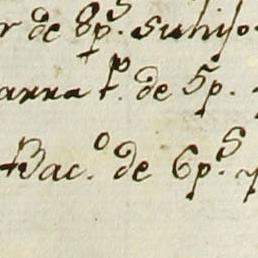 r de 8p.s su hijo
arra t.p de 5p.
Bac.o de 6p.s y